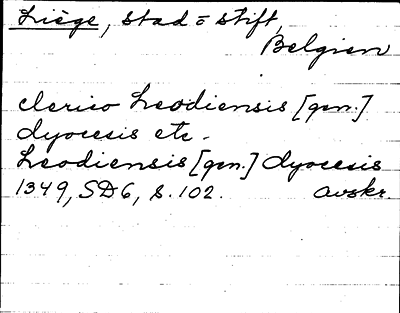 Liège, stad = stift,
Belgien
clerico Leodiensis [gen.]
dyocesis etc.
Leodiensis [gen.] dyocesis
1349, SD6, s. 102. avskr.